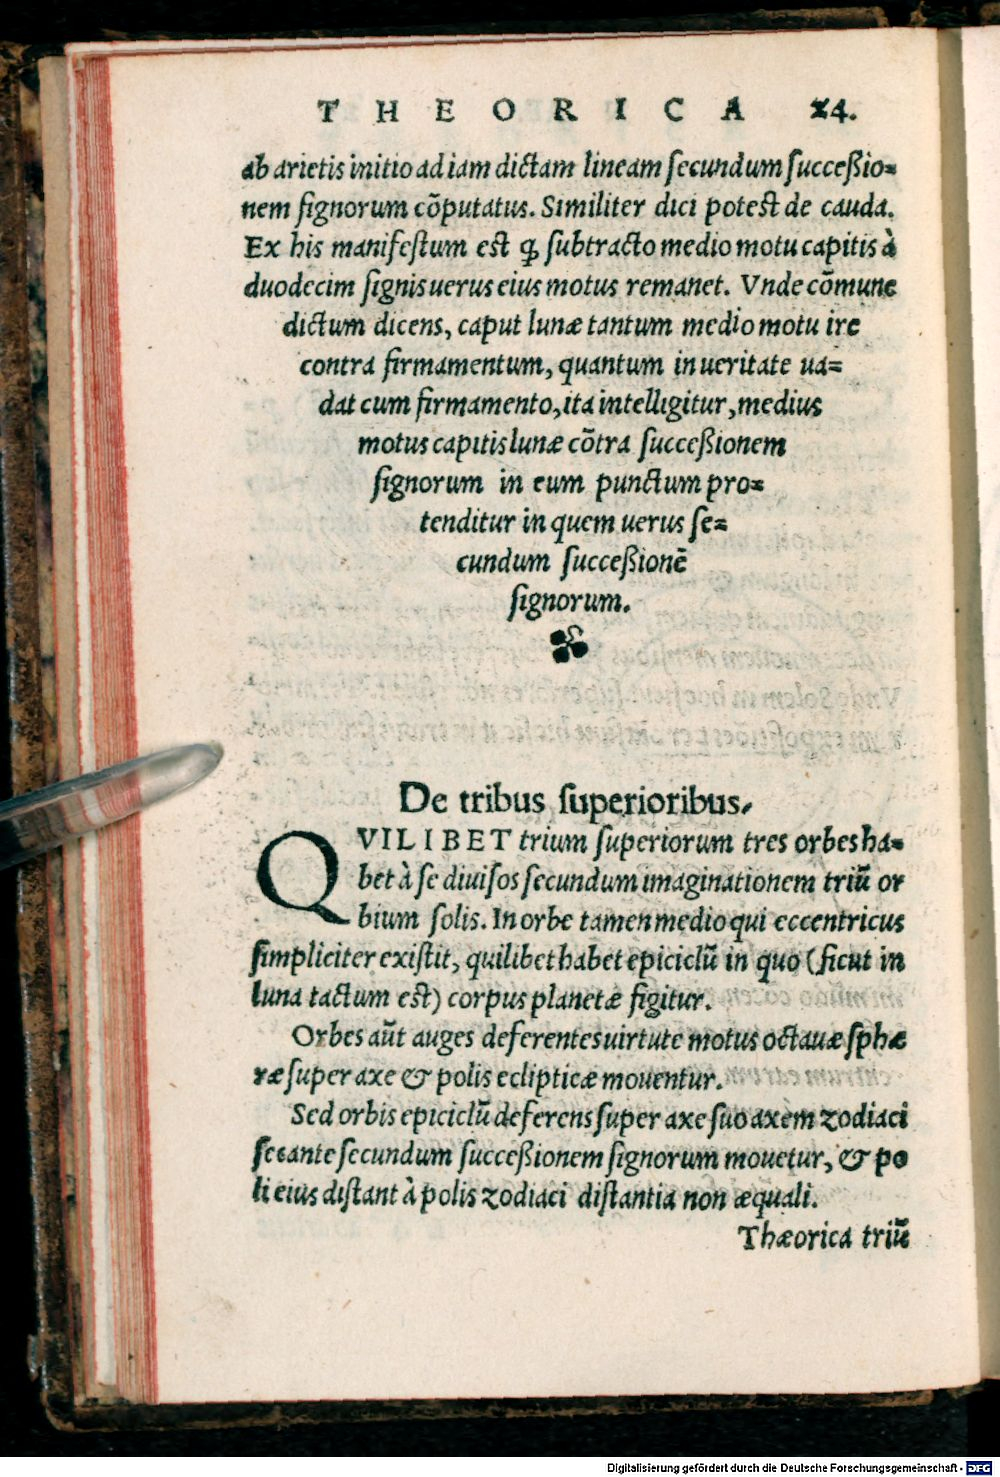 THEORICA 24.
ab arietis initio ad iam dictam lineam ſecundum ſucceßio=
nem ſignorum cõputatus. Similiter dici poteſt de cauda.
Ex his manifeſtum eſt ꝙ ſubtracto medio motu capitis à
duodecim ſignis uerus eius motus remanet. Vnde cõmune
dictum dicens, caput lunæ tantum medio motu ire
contra firmamentum, quantum in ueritate ua=
dat cum firmamento, ita intelligitur, medius
motus capitis lunæ cõtra ſucceßionem
ſignorum in eum punctum pro=
tenditur in quem uerus ſe=
cundum ſucceßionẽ
ſignorum.
De tribus ſuperioribus.
QVILIBET trium ſuperiorum tres orbes ha=
bet à ſe diuiſos ſecundum imaginationem triũ or
bium ſolis. In orbe tamen medio qui eccentricus
ſimpliciter exiſtit, quilibet habet epiciclũ in quo (ſicut in
luna tactum eſt) corpus planetæ figitur.
Orbes aũt auges deferentes uirtute motus octauæ ſphæ
ræ ſuper axe & polis eclipticæ mouentur.
Sed orbis epiciclũ deferens ſuper axe ſuo axem zodiaci
ſecante ſecundum ſucceßionem ſignorum mouetur, & po
li eius diſtant à polis zodiaci diſtantia non æquali.
Thæorica triũ
Digitalisierung gefördert durch die Deutsche Forschungsgemeinschaft - DFG